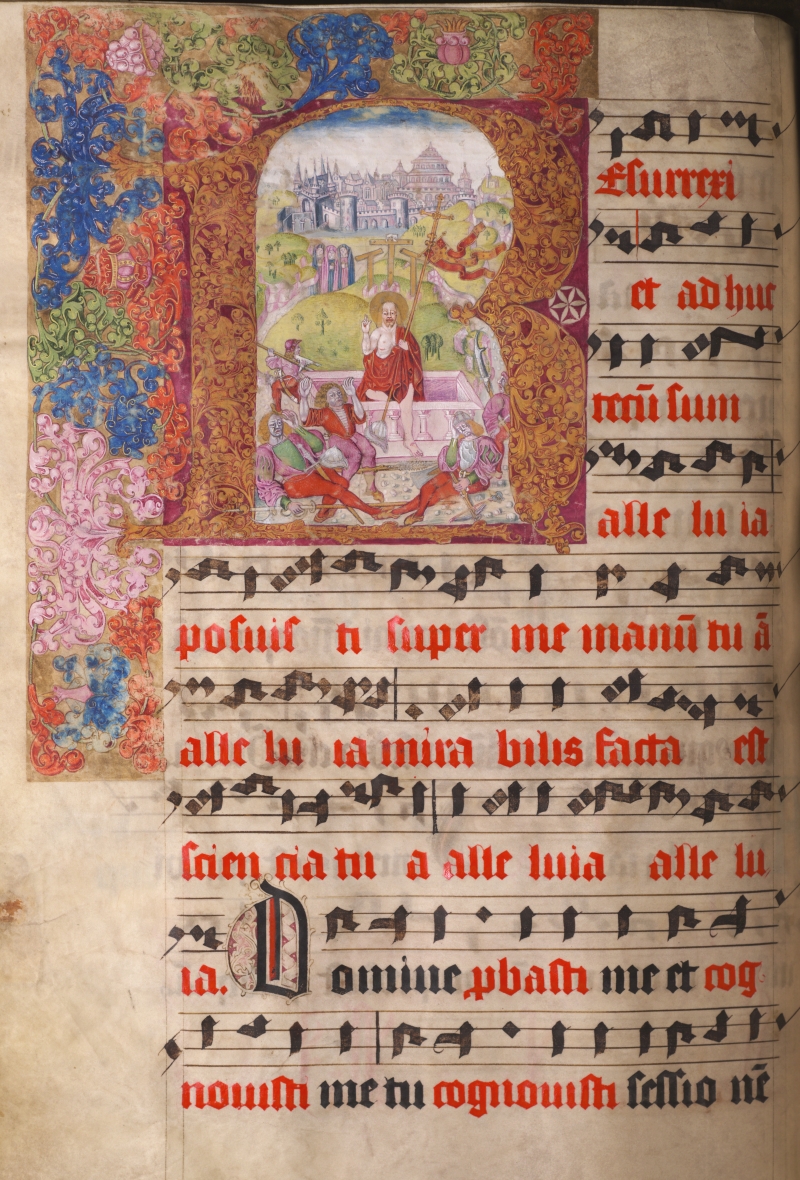 REsurrexi
et ad huc
tecū sum
alle lu ia
posuis ti super me manū tu ā
alle lu ia mira bilis facta est
scien cia tu a alle luia alle lu
ia. Domine ꝓbasti me et cog
nouisti me tu cognouisti sessio nē